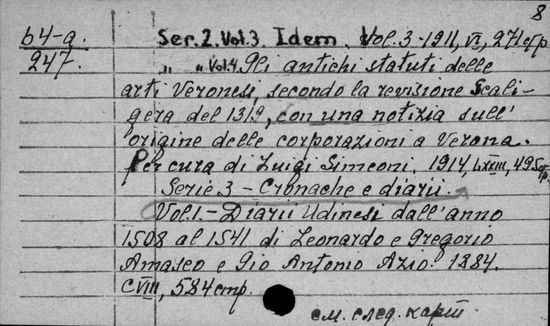 8
64-a.
247.
Ser. 2. Vol. 3. Idem. Vol. 3 - 1911, VI, 271 стр
" " Vol. 4. Gli antichi statuti delle
arti Veronesi, secondo la revisione Scali-
gera del 1319, con una notizia sull'
origine delle corporazioni a Verona.
Per cura di Luigi Simeoni. 1914, LXXIII, 495 стр.
Serie 3 - Cronache e diarii.
Vol. 1. - Diarii Udinesi dall'anno
1508 al 1541 di Leonardo e Gregorio
Amaseo e Gio Antonio Azio. 1884.
CVIII, 584 стр.
см. след. карт